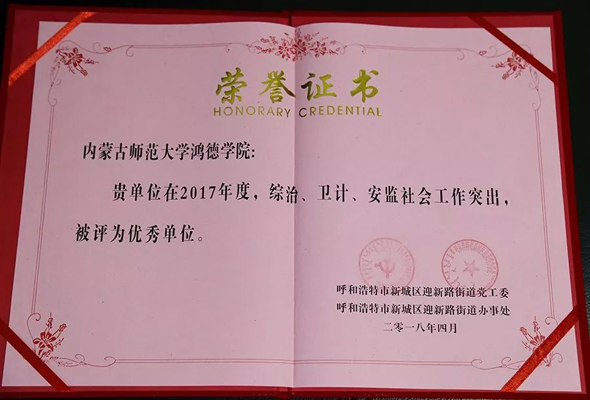 荣誉证书
HONORARY CREDENTIAL
内蒙古师范大学鸿德学院：
贵单位在2017年度，综治、卫计、安监社会工作突出，
被评为优秀单位。
呼和浩特市新城区迎新路街道党工委
呼和浩特市新城区迎新路街道办事处
二零一八年四月